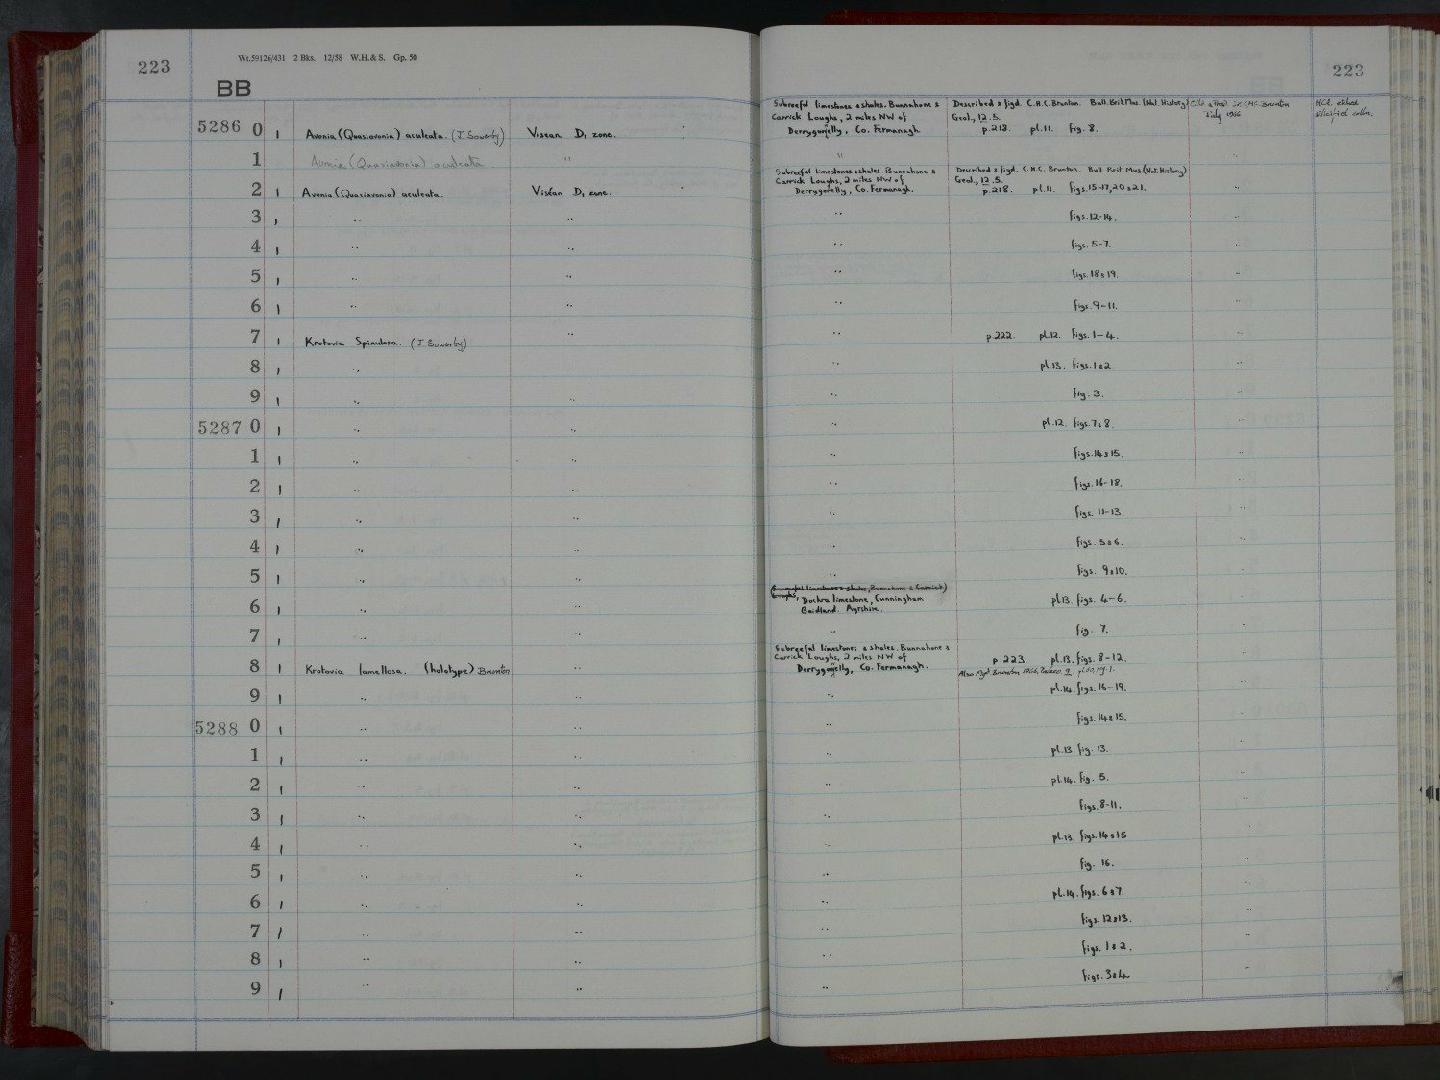 223
Wt.59126/431 2 Bks. 12/58 W.H.& S. Gp. 50
BB
5286 0 1 Avonia (Quasiavonia) aculeata. (J. Sowerby) Visean D1 zone.
1 Avonia (Quasiavonia) aculeata "
2 1 Avonia (Quasiavonia) aculeata. Viséan D1 zone.
3 1 " "
4 1 " "
5 1 " "
6 1 " "
7 1 Krotovia Spinulosa. (J Sowerby) "
8 1 " "
9 1 " "
5287 0 1 " "
1 1 " "
2 1 " "
3 1 " "
4 1 " "
5 1 " "
6 1 " "
7 1 " "
8 1 Krotovia lamellosa. (holotype) Brunton "
9 1 " "
5288 0 1 " "
1 1 " "
2 1 " "
3 1 " "
4 1 " "
5 1 " "
6 1 " "
7 1 " "
8 1 " "
9 1 " "
223
Subreefal limestones & shales. Bunnahone & Described & figd. C.H.C. Brunton. Bull. Brit Mus. (Nat. History)
Carrick Loughs, 2 miles NW of Geol., 12. 5.
Derrygonelly, Co. Fermanagh. p.218. pl.11. Fig. 8.
July 1966
HCl. etched
silicified
" "
Subreefal limestones & shales Bunnahone & Described & figd. C.H.C. Brunton. Bull. Brit Mus. (Nat. History)
Carrick Loughs, 2 miles NW of Geol., 12. 5.
Derrygonelly, Co. Fermanagh. p.218. pl.11. Figs. 15-17, 20 & 21. "
" figs. 12-14. "
" figs. 5-7. "
" figs. 18 & 19. "
" figs. 9-11. "
" p.222. pl.12. figs. 1-4. "
" pl.13. figs. 1 & 2 "
" fig. 3. "
" pl.12. figs. 7 & 8. "
" figs. 14 & 15. "
" figs. 16-18. "
" figs. 11-13 "
" figs. 5 & 6. "
" figs. 9 & 10. "
Subreefal limestones & shales, Bunnahone & Carrick
Loughs, Dockra limestone, Cunningham pl.13. figs. 4-6. "
Baidland. Ayrshire.
" fig. 7. "
Subreefal limestones & shales. Bunnahone &
Carrick Loughs, 2 miles NW of p 223 pl.13. figs. 8-12. "
Derrygonelly, Co. Fermanagh. Also figd. Brunton 1966,
" pl.14. figs. 16-19. "
" figs. 14 & 15. "
" pl.13 fig. 13. "
" pl.14. fig. 5. "
" figs. 8-11. "
" pl.13. figs. 14 & 15 "
" fig. 16. "
" pl.14. figs. 6 & 7 "
" figs. 12 & 13. "
" figs. 1 & 2. "
" figs. 3 & 4. "